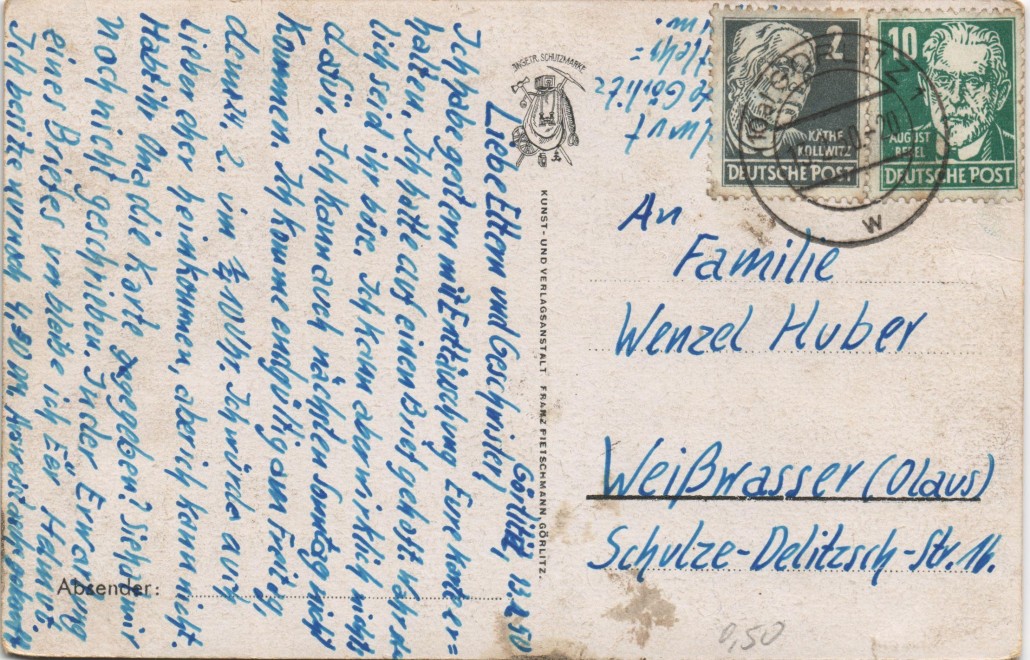 Görlitz, 13.2.50
Liebe Eltern und Geschwister,
Ich habe gestern mit Enttäuschung Eure Karte er=
halten. Ich hatte auf einen Brief gehofft.
lich seid ihr böse. Ich kann aber wirklich nicht
dafür. Ich kann auch nächsten Sonntag nicht
kommen. Ich komme enngültig am Freitag,
dem 24. 2. im 10 Uhr. Ich würde auch
lieber eher heimkommen, aber ich kann nicht.
Habt ihr Oma die Karte gegeben? Sie hat mir
noch nicht geschrieben. In der Erwartung
eines Briefes verbleibe ich Eür Helmut.
Absender:
INGETR. SCHUTZMARKE
KUNST- UND VERLAGSANSTALT FRANZ PIETSCHMANN, GÖRLITZ.
KÄTHE
KOLLWITZ
2
DEUTSCHE POST
10
AUGUST
BEBEL
DEUTSCHE POST
GÖRLITZ
w
An
Familie
Wenzel Huber
Weißwasser (Olaus)
Schulze-Delitzsch-Str. 16.
0,50